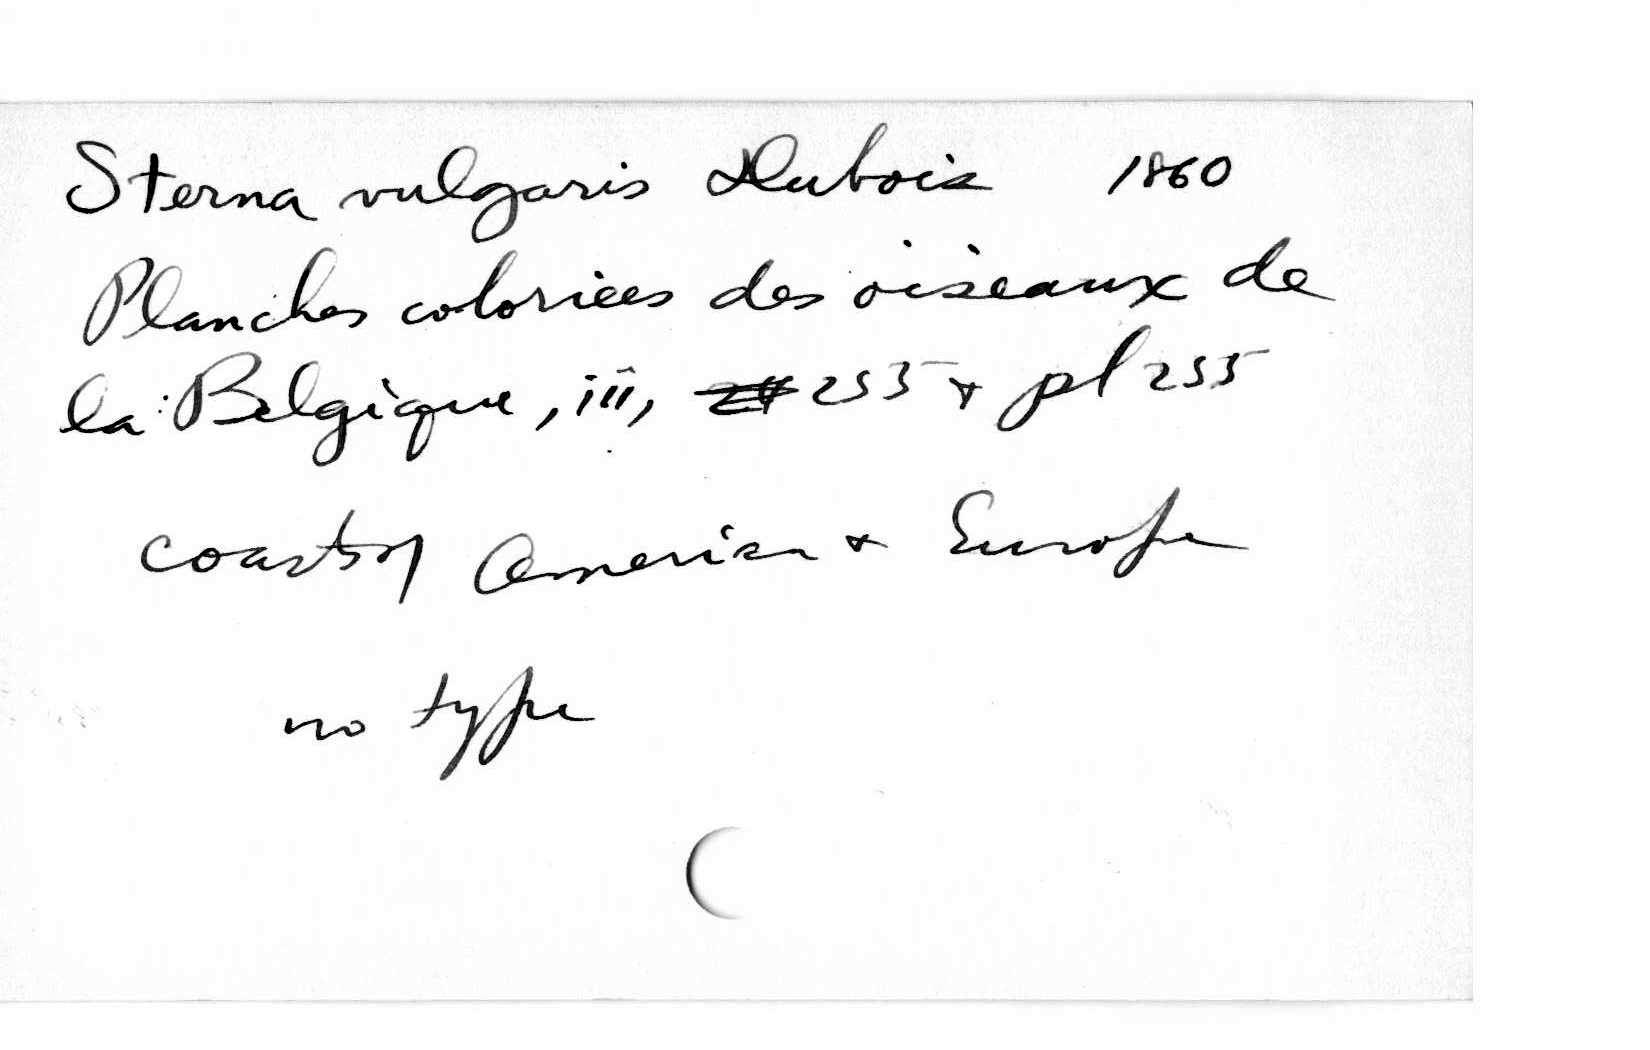 Sterna vulgaris Dubois 1860
Planches coloriees des oiseaux de
la Belgique, iii, 255 + pl 255
coasts of America + Europe
no type